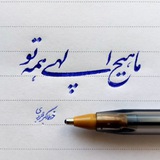 ما هیچ الهی همه تو